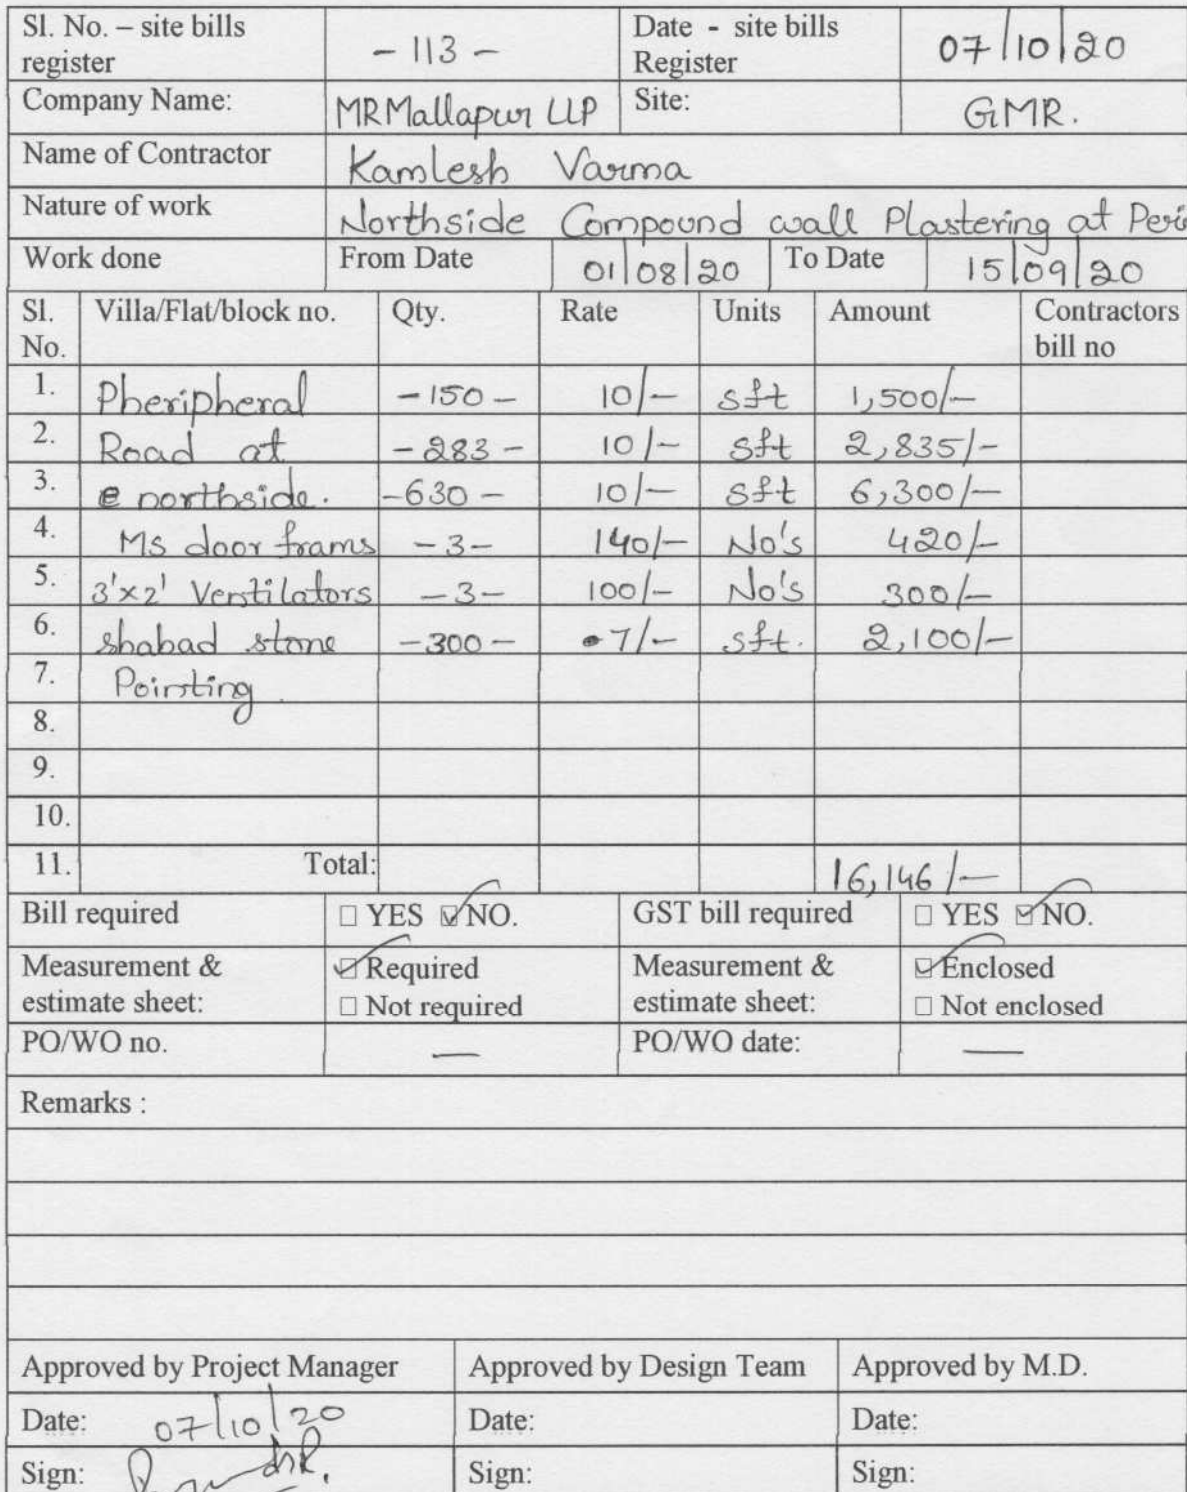 Sl. No. – site bills register - 113 - Date - site bills Register 07/10/20
Company Name: MRMallapur LLP Site: GMR.
Name of Contractor Kamlesh Varma
Nature of work Northside Compound wall Plastering at Peri
Work done From Date 01/08/20 To Date 15/09/20
Sl. No. Villa/Flat/block no. Qty. Rate Units Amount Contractors bill no
1. Pheripheral -150- 10/- sft 1,500/-
2. Road at -283- 10/- sft 2,835/-
3. northside. -630- 10/- sft 6,300/-
4. Ms door frams -3- 140/- No's 420/-
5. 3'x2' Ventilators -3- 100/- No's 300/-
6. shabad stone -300- 7/- sft. 2,100/-
7. Pointing
8.
9.
10.
11. Total: 16,146/-
Bill required □ YES ☑ NO. GST bill required □ YES ☑ NO.
Measurement & estimate sheet: ☑ Required □ Not required Measurement & estimate sheet: ☑ Enclosed □ Not enclosed
PO/WO no. — PO/WO date: —
Remarks :
Approved by Project Manager Approved by Design Team Approved by M.D.
Date: 07/10/20 Date: Date:
Sign: Sign: Sign: